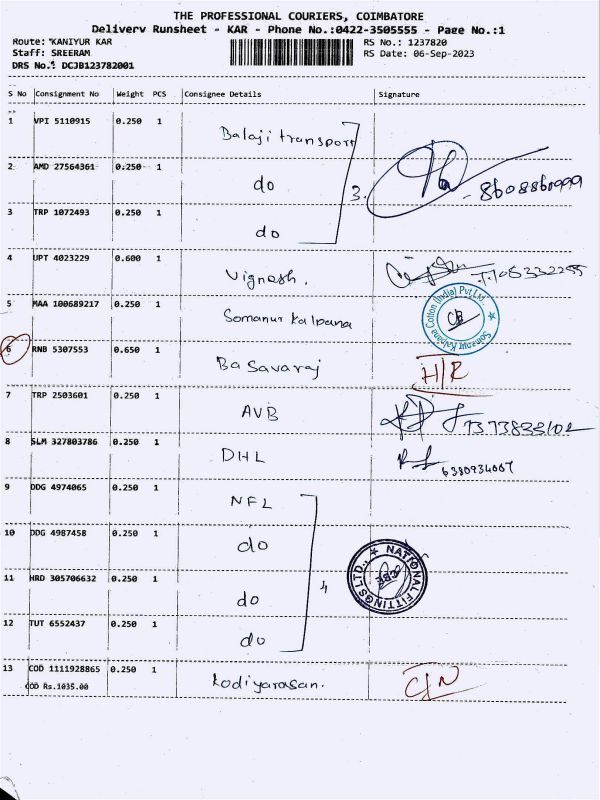 THE PROFESSIONAL COURIERS, COIMBATORE
Delivery Runsheet - KAR - Phone No.:0422-3505555 - Page No.:1
Route: KANIYUR KAR RS No.: 1237820
Staff: SREERAM RS Date: 06-Sep-2023
DRS No.: DCJB123782001
S No Consignment No Weight PCS Consignee Details Signature
1 VPI 5110915 0.250 1 Balaji transport
2 AMD 27564361 0.250 1 do 3. 8608860999
3 TRP 1072493 0.250 1 do
4 UPT 4023229 0.600 1 Vignesh.
5 MAA 100689217 0.250 1 Somanur Kalpana Somanur Kalpana Cotton (India) Pvt Ltd
6 RNB 5307553 0.650 1 Basavaraj H/R
7 TRP 2503601 0.250 1 AVB 7373833102
8 SLM 327803786 0.250 1 DHL 6380934007
9 DDG 4974065 0.250 1 NFL
10 DDG 4987458 0.250 1 do NATIONAL FITTINGS LTD.,
11 HRD 305706632 0.250 1 do 4
12 TUT 6552437 0.250 1 do
13 COD 1111928865 0.250 1 Kodiyarasan. C/N
COD Rs.1035.00